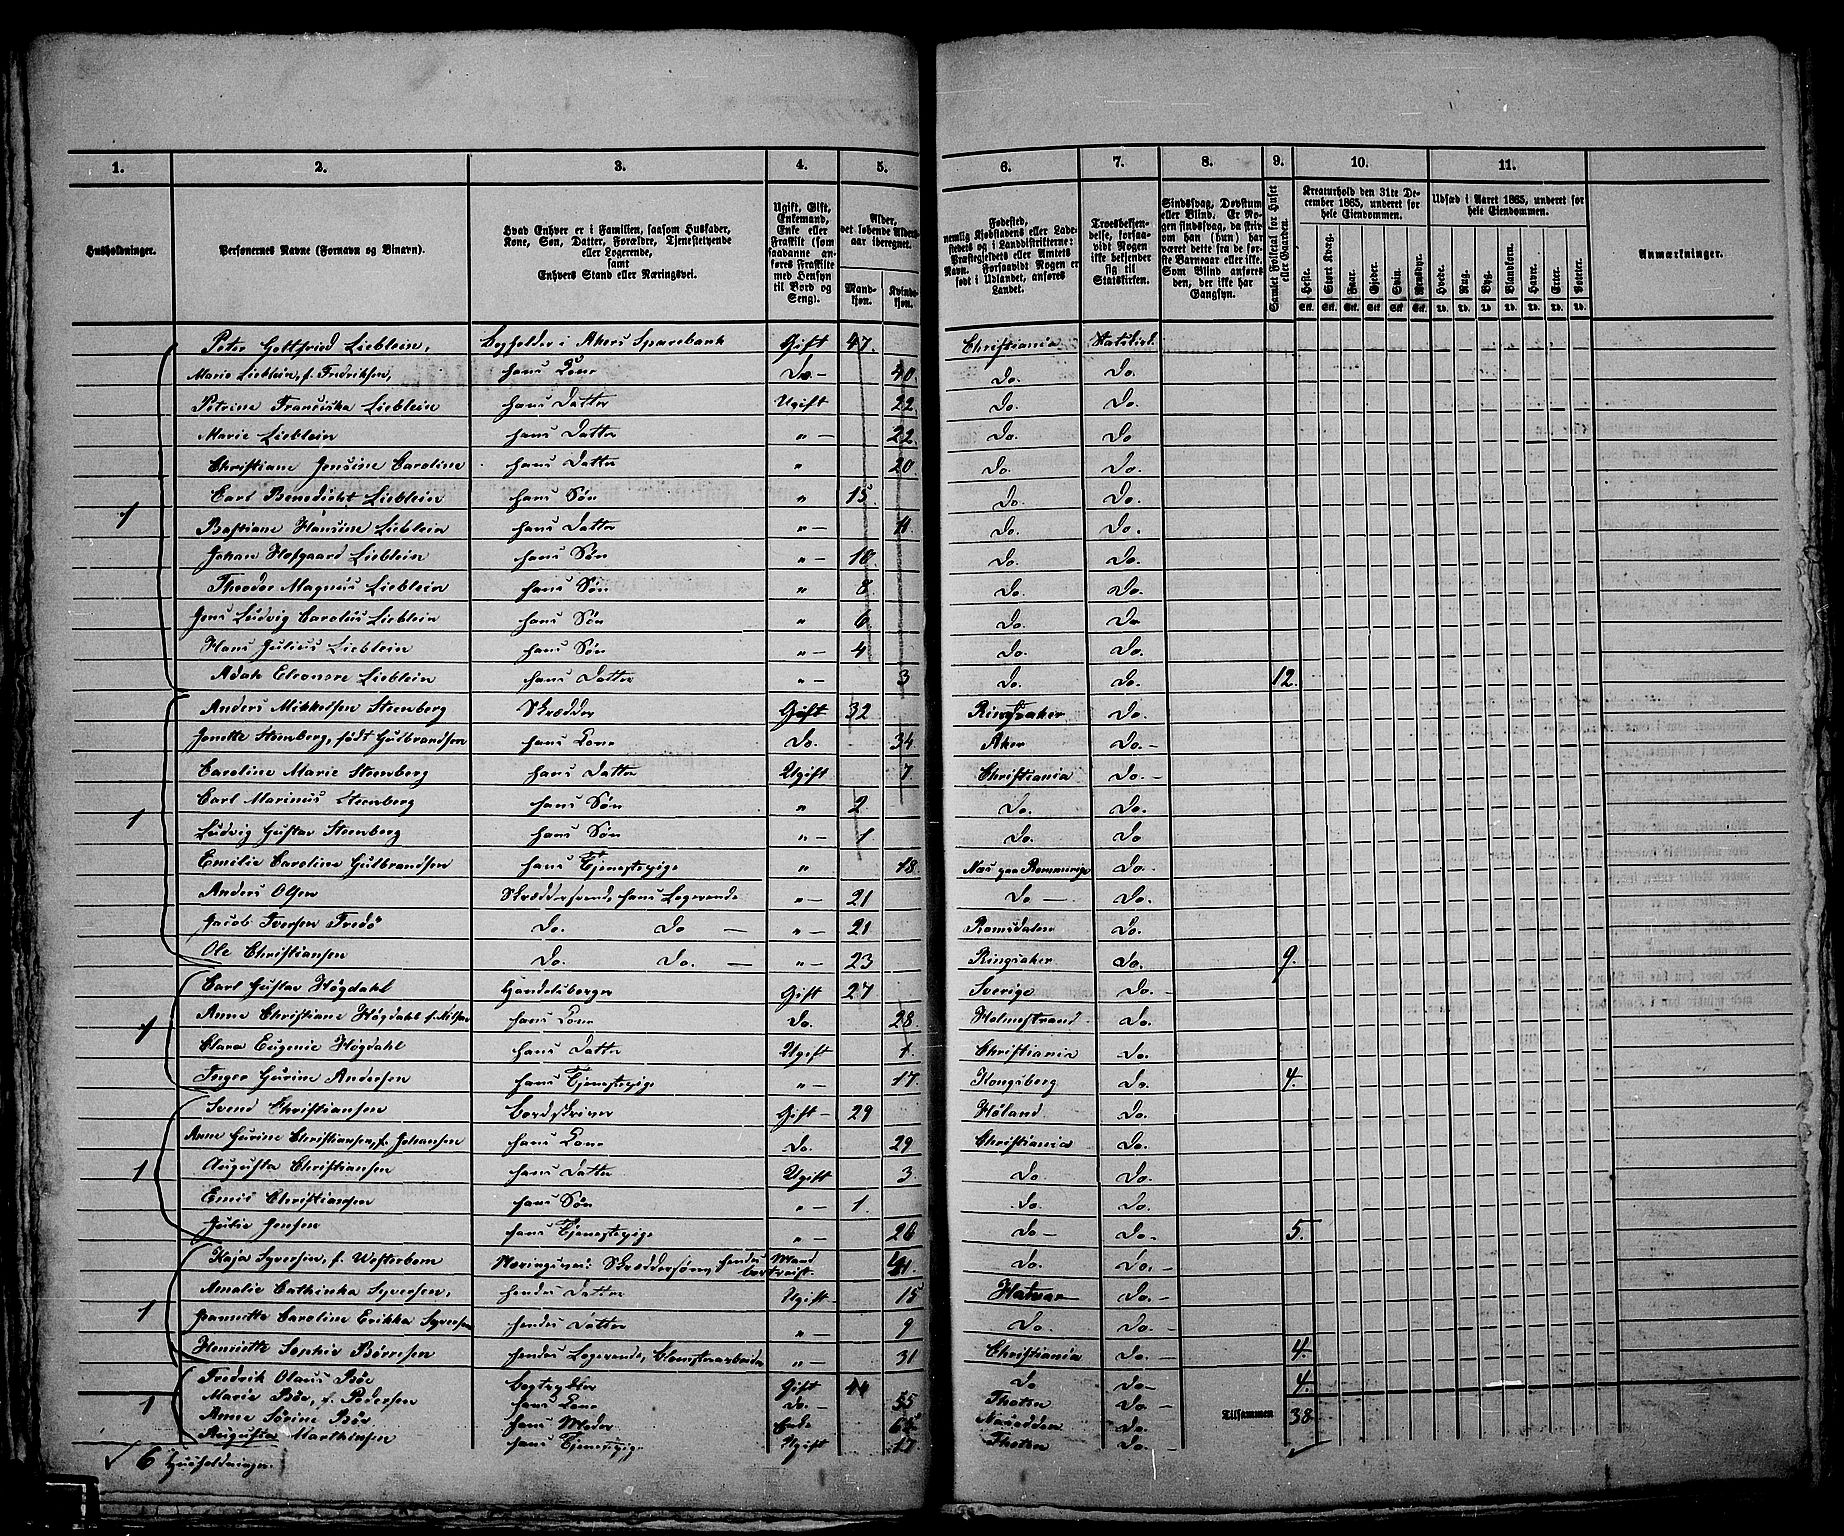 1. 2. 3. 4. 5. 6. 7. 8. 9. 10. 11.
Husholdninger.
Personernes Navne (Fornavn og Binavn).
Hvad Enhver er i Familien, saasom Husfader, Kone, Søn, Datter, Forældre, Tjenestetyende eller Logerende, samt Enhvers Stand eller Næringsvei.
Ugift, Gift, Enkemand, Enke eller Fraskilt (som saadanne anføres Fraskilte med Hensyn til Bord og Seng).
Alder, det løbende Aldersaar iberegnet.
Mandkjøn. Kvindekjøn.
Fødested, nemlig Kjøbstadens eller Ladestedets og i Landdistrikterne: Præstegjeldets eller Amtets Navn. Forsaavidt Nogen er født i Udlandet, anføres Landet.
Troesbekjendelse, forsaavidt Nogen ikke bekjender sig til Statskirken.
Sindssvag, Døvstum eller Blind. Er Nogen sindssvag, da skriv om han (hun) har været dette fra de første Barneaar eller ikke. Som Blind anføres den, der ikke har Gangsyn.
Samlet Folketal for Huset eller Gaarden.
Kreaturhold den 31te December 1865, underet for hele Eiendommen.
Heste. Stort Kvæg. Faar. Gjeder. Svin. Rensdyr.
Udsæd i Aaret 1865, underet for hele Eiendommen.
Hvede. Rug. Byg. Blandkorn. Havre. Erter. Poteter.
Anmærkninger.
Peter Gottfried Lieblein, Bogholder i Akers Sparebank Gift 47. Christiania Statskirk.
Marie Lieblein, f. Fredriksen, hans Kone Do. - 40. Do. Do.
Petrine Franciska Lieblein hans Datter Ugift 22. Do. Do.
Marie Lieblein hans Datter " - 22 Do. Do
Christiane Jensine Caroline hans Datter " 20 Do. Do.
Carl Benedicht Lieblein hans Søn " 15. Do. Do.
1 Bastiane Hansine Lieblein hans Datter " - 11. Do. Do.
Johan Hofgaard Lieblein hans Søn " - 10. Do. Do.
Theodor Magnus Lieblein hans Søn " 8 Do. Do.
Jens Ludvig Carolus Lieblein hans Søn " 6 Do. Do.
Hans Julius Lieblein hans Søn " - 4 Do. Do.
Adah Eleonore Lieblein hans Datter " - 3 Do. Do. 12.
Anders Mikkelsen Steenberg Skrædder Gift 32 Ringsaker Do.
Jonette Steenberg, født Gulbrandsen hans Kone Do. 34 Aker Do. -
Caroline Marie Steenberg hans Datter Ugift 7 Christiania Do. -
1 Carl Marinus Steenberg hans Søn " 2 Do. Do.
Ludvig Gustav Steenberg hans Søn " - 1 Do. Do
Emilie Caroline Gulbrandsen hans Tjenestepige " 18. Næs paa Rommerige Do.
Anders Olsen Skræddersvend, hans Logerende " - 21 Do - Do.
Jacob Iversen Fredø Do. Do - " - 21 Romsdalen Do.
Ole Christiansen Do. Do. - " - 23 Ringsaker Do. 9.
Carl Gustav Høgdahl Handelsborger Gift 27 Sverige Do. -
1 Anne Christiane Høgdahl f. Nilsen hans Kone Do. 28. Holmestrand Do.
Clara Eugenie Høgdahl hans Datter Ugift 1. Christiania Do.
Inger Gurine Andersen hans Tjenestepige " - 17. Kongsberg Do. 4.
Svend Christiansen Gift - 29 Høland Do.
Anne Gurine Christiansen, f. Johansen hans Kone Do. 29 Christiania Do.
1 Augusta Christiansen hans Datter Ugift 3 Do. Do.
Emil Christiansen hans Søn " - 1. Do. Do
Julie Jensen hans Tjenestepige " - 26 Do - Do. 5.
Kaja Syversen, f. Westerbom Næringsvei Skræddersøm, hendes Mand bortreist. 41. Do. Do. -
Amalie Cathinka Syversen, hendes Datter Ugift 15 Do. -
1 Jeannette Caroline Erikka Syversen hendes Datter " - 9 Do. Do. -
Henriette Sophie Børresen hendes Logerende, Blomsterarbeider " - 31 Christiania Do. - 4.
Fredrik Olaus Bøe Bogtrykker Gift 44 Do Do - 4.
1 Marie Bøe, f. Pedersen hans Kone Do. - 35 Thoten Do. -
Anne Sørine Bøe hans Moder Enke 65 Do.
Augusta Marthinsen hans Tjenestepige Ugift 17 Thoten Do. -
Tilsammen 38
6 Husholdninger.